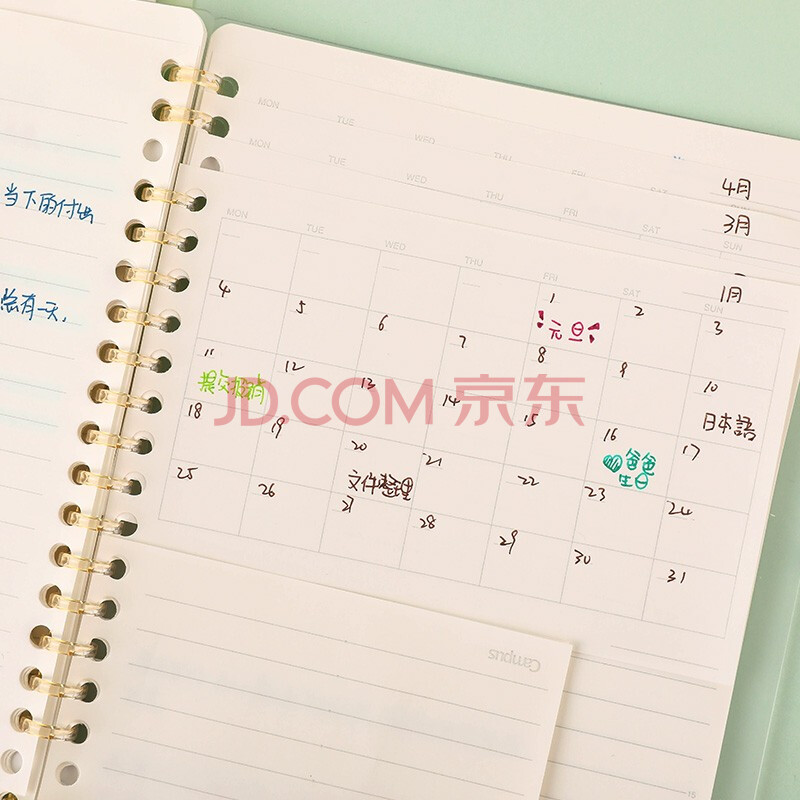 当下的付出
总有一天,
MON TUE WED THU
4月
MON TUE WED THU FRI SAT SUN
3月
1月
MON TUE WED THU FRI SAT SUN
1 2 3
元旦
4 5 6 7 8 9 10
日本語
11 12 13 14 15 16 17
爸爸
生日
18 19 20 21 22 23 24
文件整理
25 26 27 28 29 30 31
JD.COM 京东
Campus
15